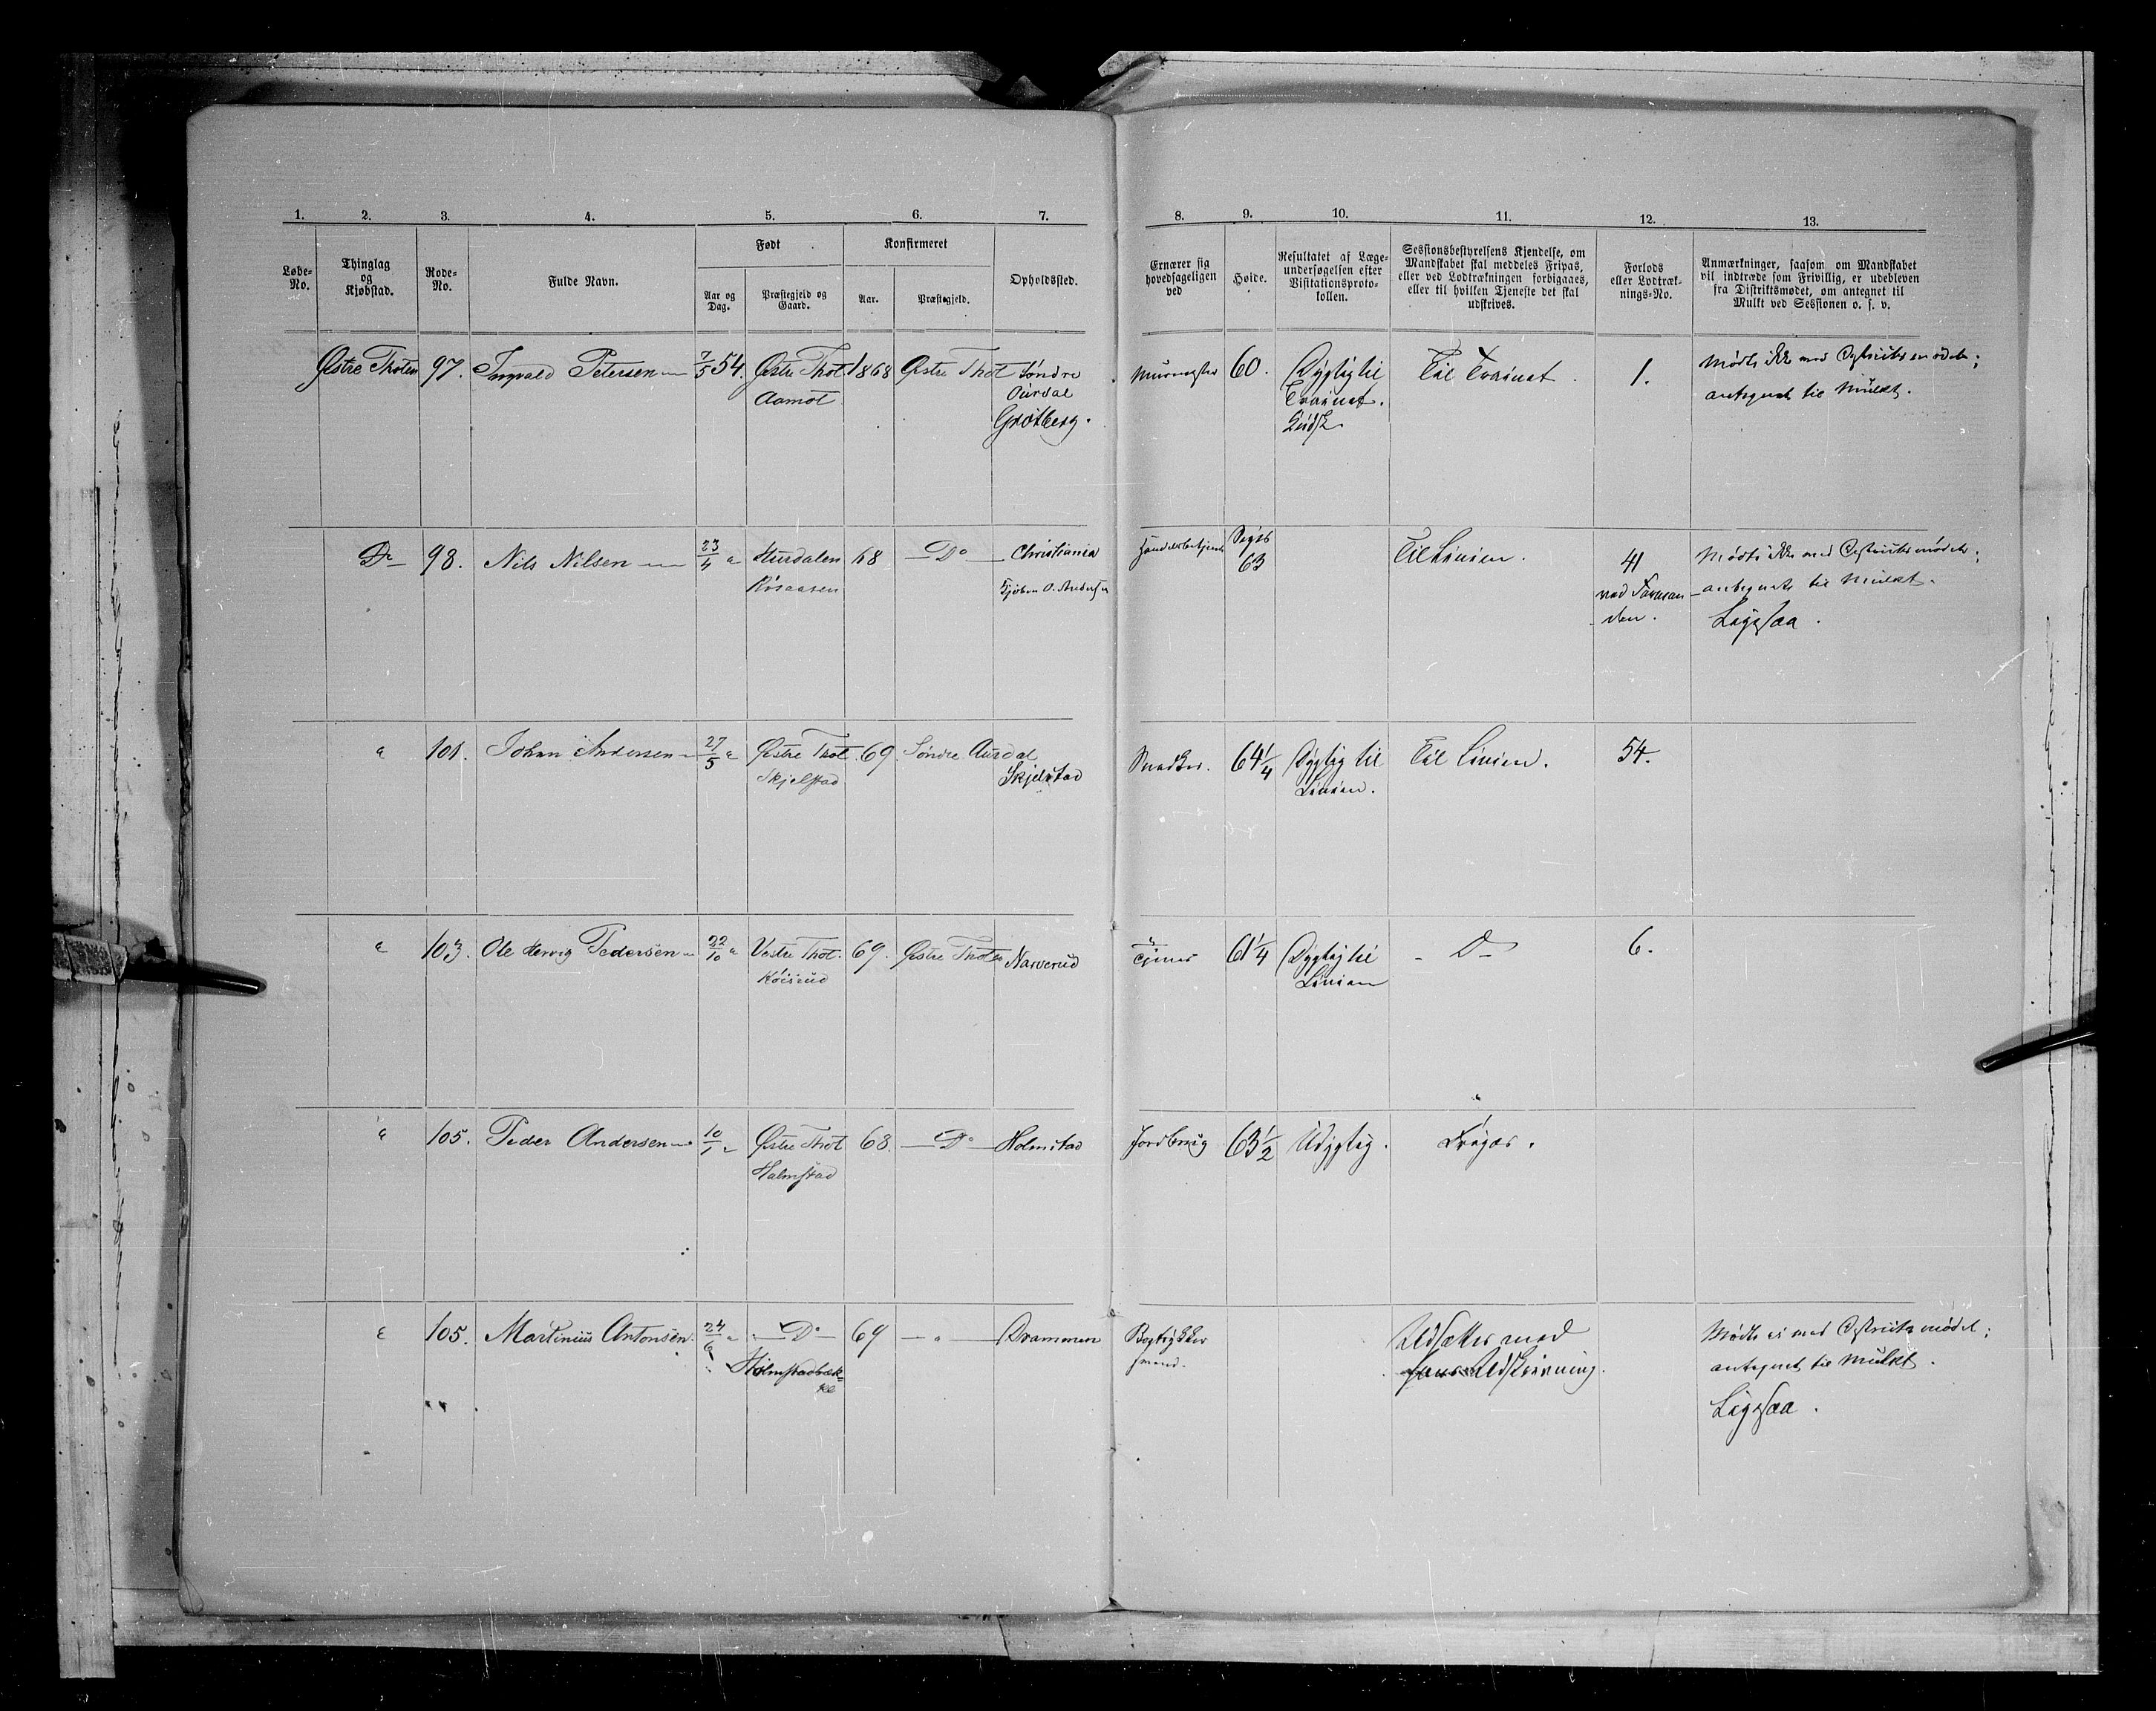 1. 2. 3. 4. 5. 6. 7. 8. 9. 10. 11. 12. 13.
Løbe-No.
Thinglag og Kjøbstad.
Rode-No.
Fulde Navn.
Født
Aar og Dag.
Præstegjeld og Gaard.
Konfirmeret
Aar.
Præstegjeld.
Opholdssted.
Ernærer sig hovedsageligen ved
Høide.
Resultatet af Læge-undersøgelsen efter Visitationsproto-kollen.
Sessionsbestyrelsens Kjendelse, om Mandskabet skal meddeles Fripas, eller ved Lodtrækningen forbigaaes, eller til hvilken Tjeneste det skal udskrives.
Forlods eller Lodtræk-nings-No.
Anmærkninger, saasom om Mandskabet vil indtræde som Frivillig, er udebleven fra Distriktsmødet, om antegnet til Mulkt ved Sessionen o. s. v.
Østre Thoten 97. Ingvald Petersen 7/5 54. Østre Thot 1868 Østre Thot Søndre Murmester 60. Dygtig til Til Trainet. 1. Mødte ikke med Distriktsmødet;
Aamot Aurdal Trainet. antegnet til Mulkt.
Grøtberg.
Do 98. Nils Nilsen 23/4 " Hurdalen 68 Do Christiania Handelsbetjent 63 Til Linien. 41 Mødte ikke med Distriktsmødet;
Røsaasen antegnet til Mulkt.
Ligesaa.
" 101. Johan Andersen 27/5 " Østre Thot. 69. Søndre Aurdal Snedker. 64 1/4 Dygtig til Til Linien. 54.
Skjelstad Skjelstad Linien.
" 103. Ole Hervig Pedersen 22/10 " Vestre Thot. 69. Østre Thoten Narverud Tjener 61 1/4 Dygtig til Do 6.
Køisrud Linien
" 105. Peder Andersen 10/1 " Østre Thot 68. Do Holmstad Jordbrug 63 1/2 Udygtig. Fripas.
Halmstad
" 105. Martinius Antonsen. 24/6 " Do 69 " Drammen Bogtrykker Udsættes med Mødte ei med Distriktsmødet;
Holmstadbæk-ke svend. Udskrivning. antegnet til Mulkt.
Ligesaa.